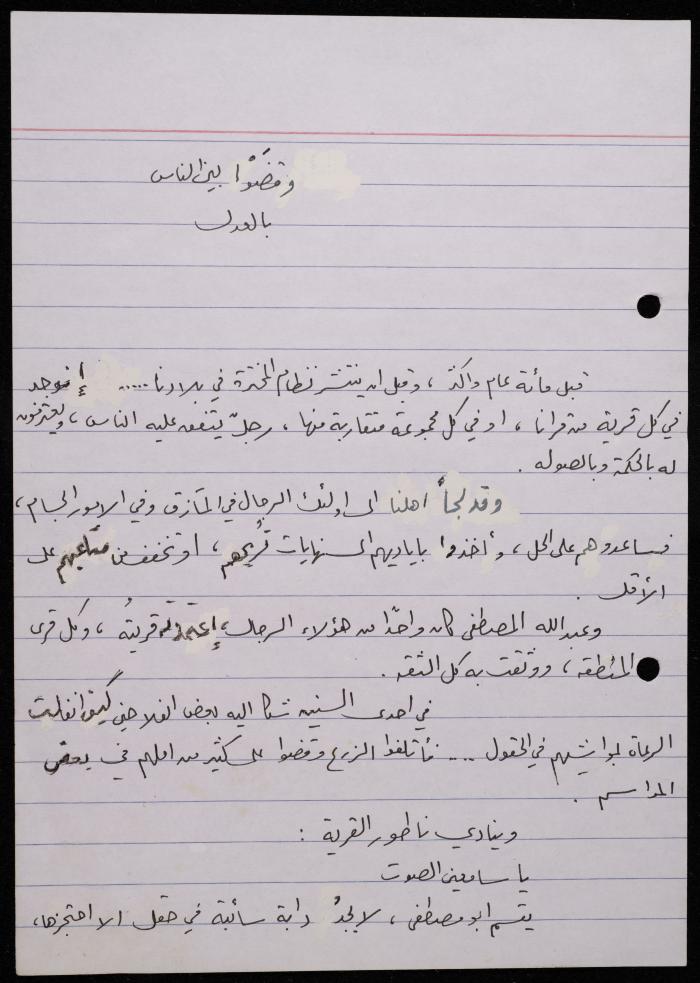 وقضَوْا بين الناس
بالعدل
قبل مائة عام واكثر ، وقبل ان ينتشر نظام المخترة في بلادنا ..... إنوجد
في كل قرية من قرانا ، او في كل مجموعة متقاربة منها ، رجلٌ يتفق عليه الناس ، ويعترفون
له بالحكمة وبالصوله .
وقد لجأ اهلنا الى اولئك الرجال في المآزق وفي الامور الجسام ،
فساعدوهم على الحل ، وأخذوا باياديهم الى نهايات تُريحهم ، او تخفف من متاعبهم على
الأقل .
وعبد الله المصطفى كان واحدًا من هؤلاء الرجال ، إعتمدته قريتُه ، وكل قرى
المنطقه ، ووثقت به كل الثقه .
في احدى السنين شكا اليه بعض الفلاحين كيف انفلت
الرعاة بمواشيهم في الحقول .... فأتلفوا الزرع وقضوا على كثير من املهم في بعض
المواسم .
وينادي ناطور القرية :
يا سامعين الصوت
يقسم ابو مصطفى ، لا يجدُ دابة سائبة في حقل الا احتجزها ،